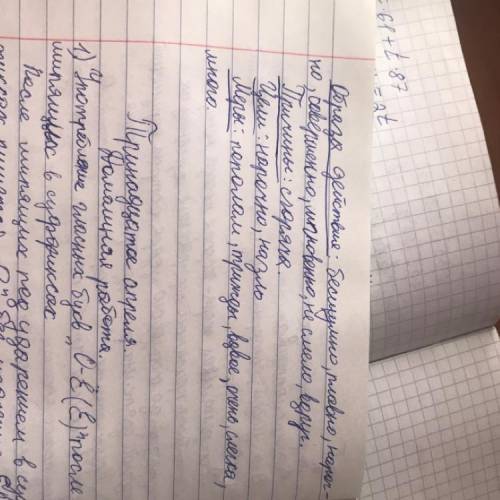 Образа действия: бесшумно, плавно, нароч-
но, совершенно, мгновенно, не смело, вдруг.
Причины: сгоряча.
Цели: нарочно, назло
Меры: пополам, трижды, вдвое, очень, слегка,
много.
Тринадцатое апреля.
Домашняя работа.
1) Употребление гласных букв "О-Ё(Е)" после
шипящих в суффиксах
После шипящих под ударением в су